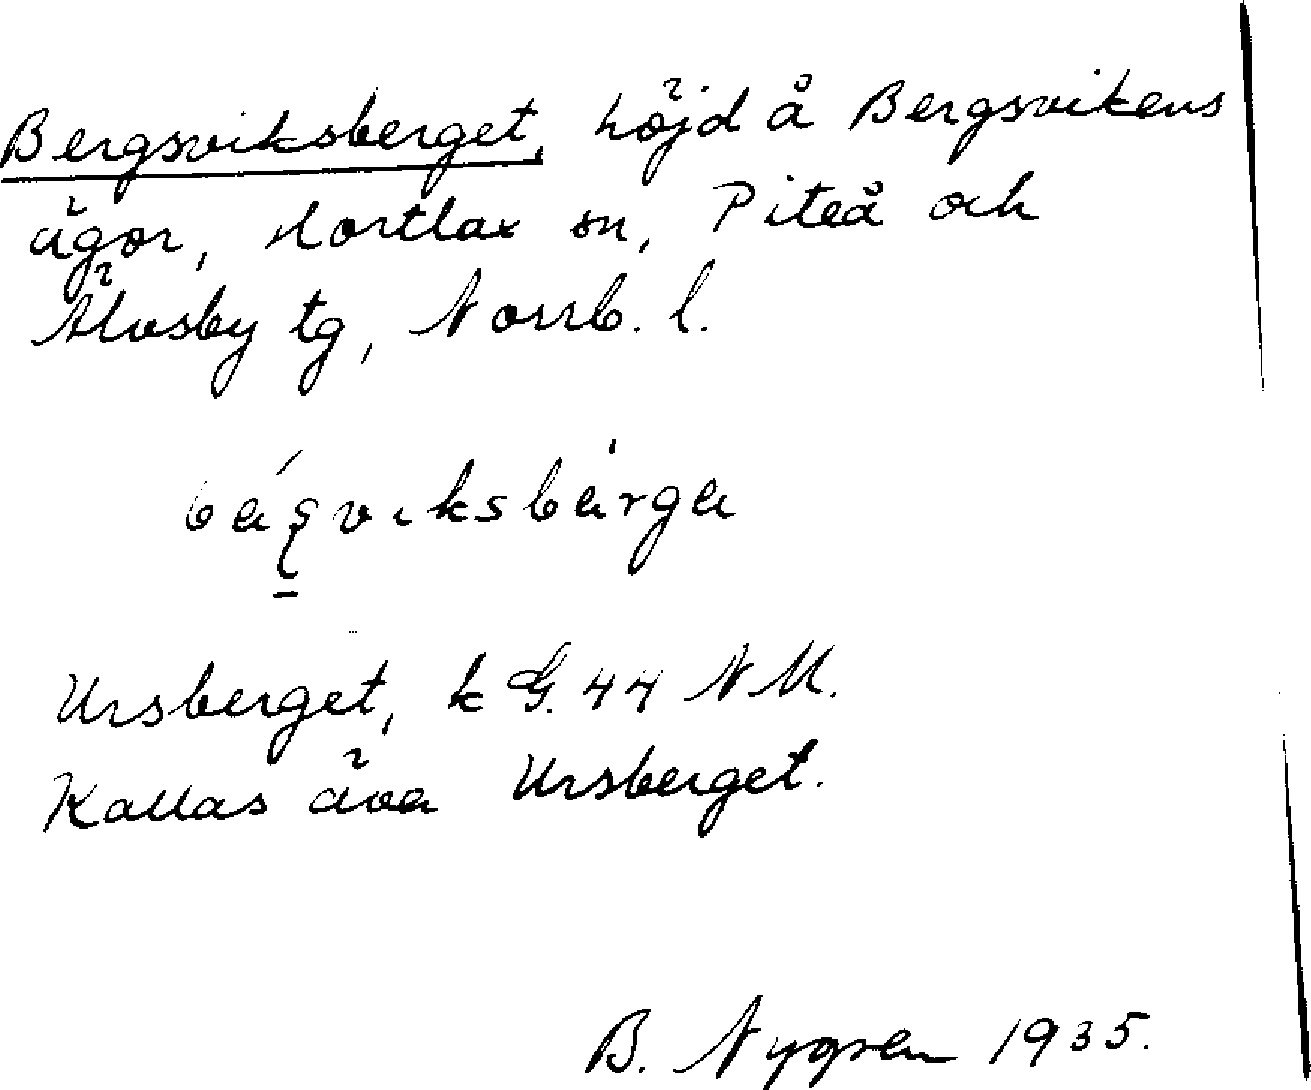 Bergsviksberget, höjd å Bergsvikens
ägor, Hortlax sn, Piteå och
Älvsby tg, Norrb. l.
Ursberget, k G. 44 NM.
Kallas äva Ursberget.
B. Nygren 1935.